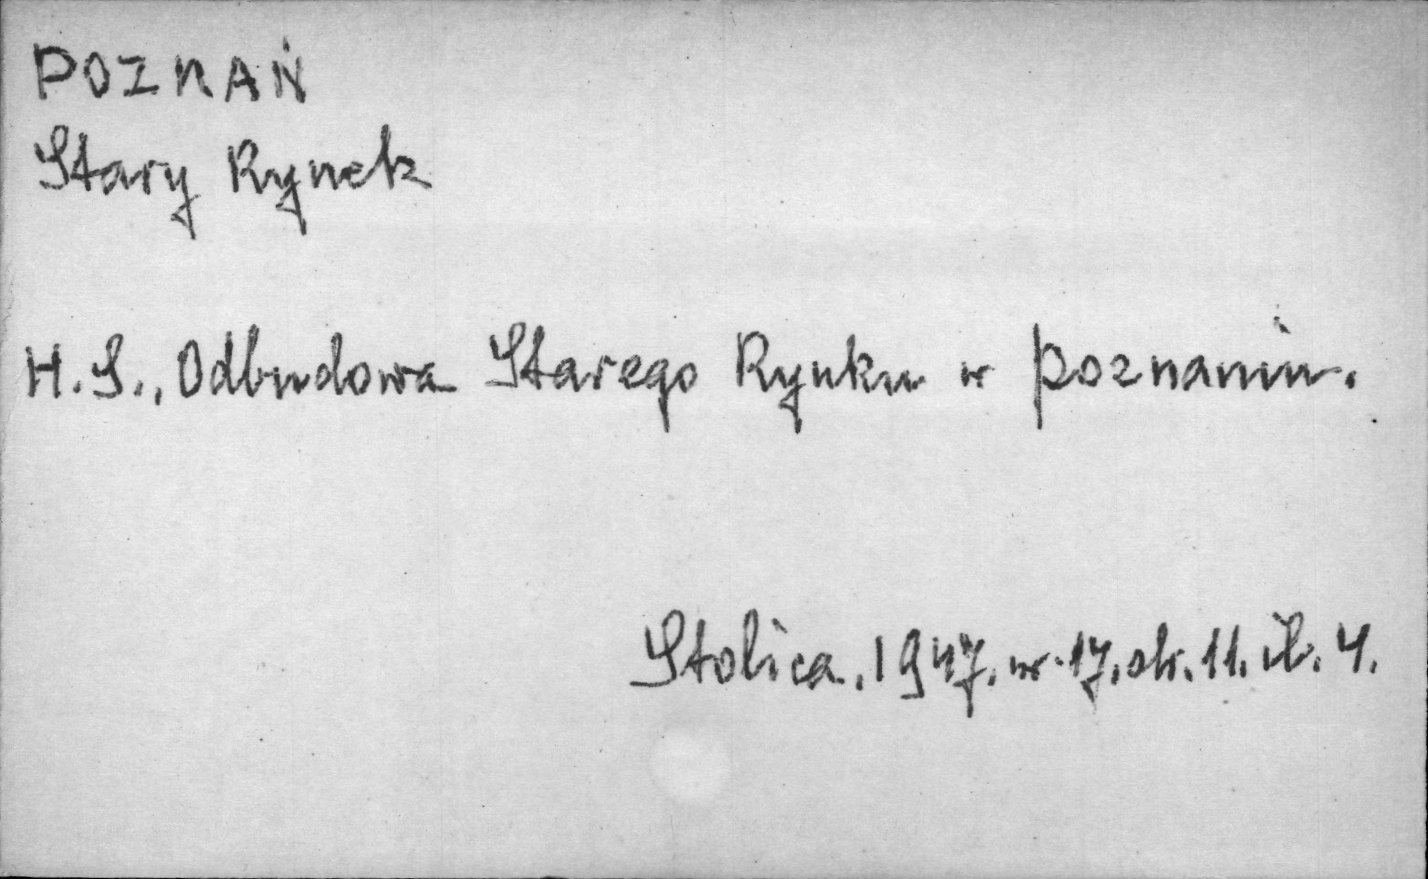 POZNAŃ
Stary Rynek
H. S., Odbudowa Starego Rynku w Poznaniu.
Stolica. 1947. nr. 17. str. 11. il. 4.